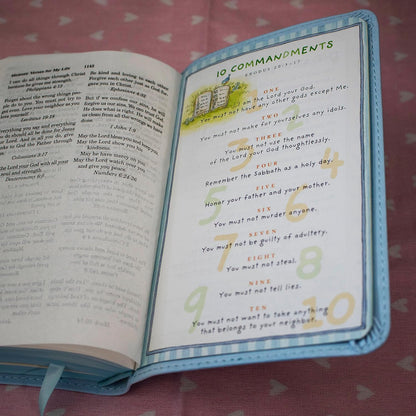 Memory Verses for My Life
1142
I can do all things through Christ
because he gives me strength.
Philippians 4:13
Forget about the wrong things people
do to you. You must not try to
get even. Love your neighbor as
you love yourself.
Leviticus 19:18
Everything you say and everything
you do should all be done for Jesus
your Lord. And in all you do, give
thanks to God the Father through
Jesus.
Colossians 3:17
Love the Lord your God with all your
heart, soul and strength.
Deuteronomy 6:5
Be kind and loving to each other.
Forgive each other just as God for-
gave you in Christ.
Ephesians 4:32
But if we confess our sins, he will
forgive us our sins. We can trust God.
He does what is right. He will make
us clean from all the wrongs we have
done.
1 John 1:9
May the Lord bless you and keep you.
May the Lord show you his
kindness.
May he have mercy on you.
May the Lord watch over you
and give you peace.
Numbers 6:24-26
10 COMMANDMENTS
EXODUS 20:1-17
ONE
I am the Lord your God.
You must not have any other gods except Me.
TWO
You must not make for yourselves any idols.
THREE
You must not use the name
of the Lord your God thoughtlessly.
FOUR
Remember the Sabbath as a holy day.
FIVE
Honor your father and your mother.
SIX
You must not murder anyone.
SEVEN
You must not be guilty of adultery.
EIGHT
You must not steal.
NINE
You must not tell lies.
TEN
You must not want to take anything
that belongs to your neighbor.
4
5
6
7
8
9
10